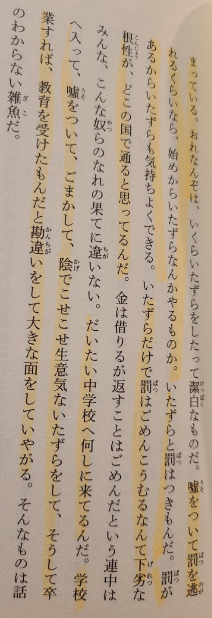 まっている。おれなんぞは、いくらいたずらをしたって潔白なものだ。嘘をついて罰を逃
れるくらいなら、始めからいたずらなんかやるものか。いたずらと罰はつきもんだ。罰が
あるからいたずらも気持ちよくできる。いたずらだけで罰はごめんこうむるなんて下劣な
根性が、どこの国で通ると思ってるんだ。金は借りるが返すことはごめんだという連中は
みんな、こんな奴らのなれの果てに違いない。だいたい中学校へ何しに来てるんだ。学校
へ入って、嘘をついて、ごまかして、陰でこせこせ生意気ないたずらをして、そうして卒
業すれば、教育を受けたもんだと勘違いをして大きな面をしていやがる。そんなものは話
のわからない雑魚だ。